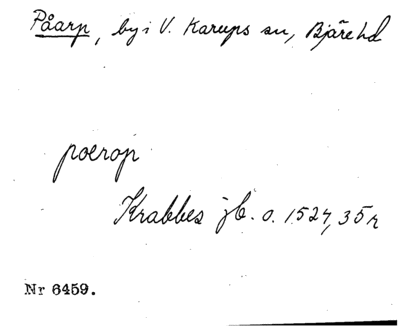 Påarp, by i V. Karups sn, Bjäre hd
poerop
Krabbes jb. o. 1527, 35 r
Nr 6459.